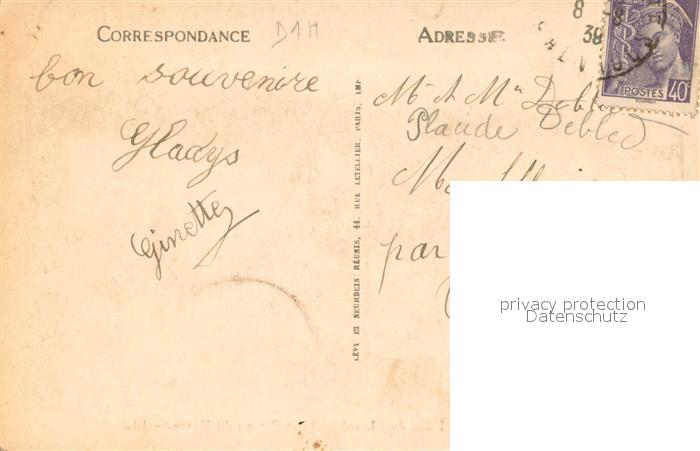 CORRESPONDANCE
D1M
bon souvenire
Gladys
Ginette
LÉVY ET NEURDEIN RÉUNIS, 44, RUE LETELLIER, PARIS, IMP.
ADRESSE
8
39
POSTES 40c
Mr et Mme Debled
Placide Debled
par
privacy protection
Datenschutz